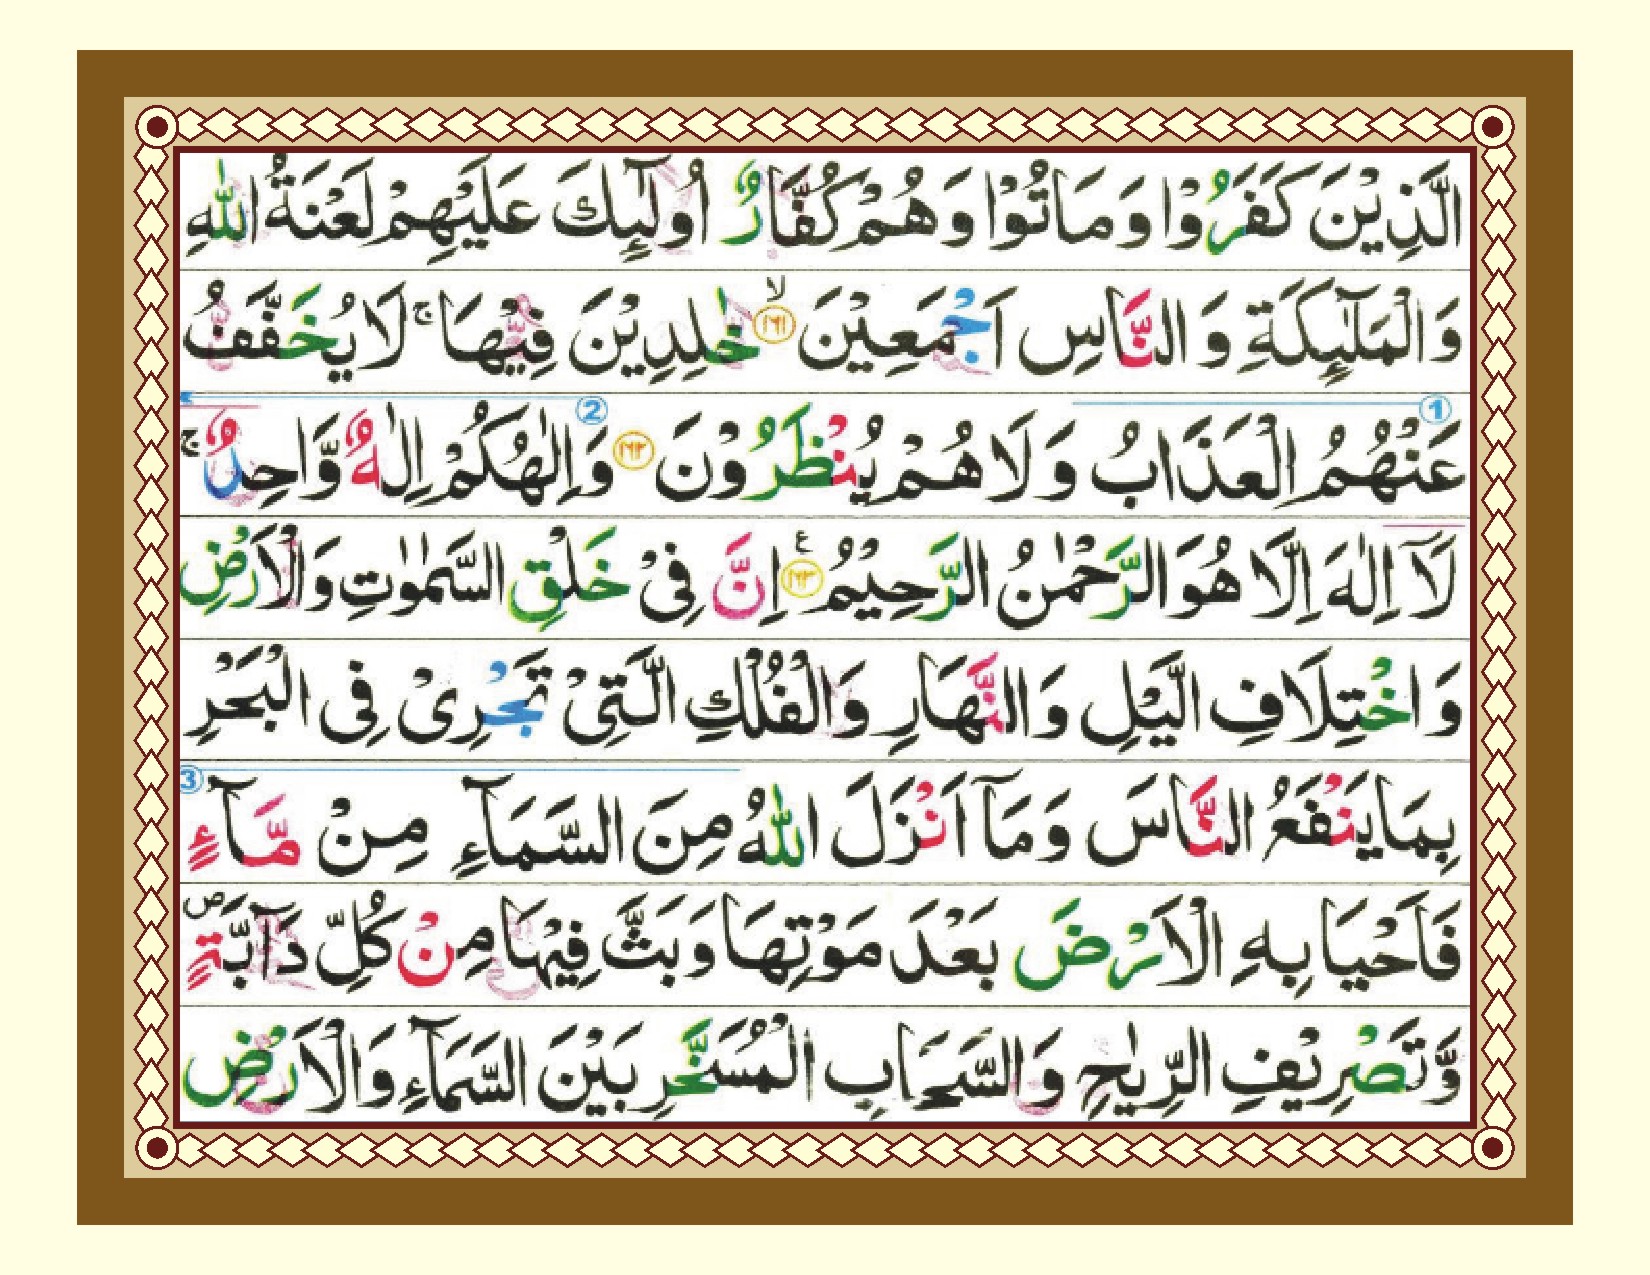 الَّذِيْنَ كَفَرُوْا وَمَاتُوْا وَهُمْ كُفَّارٌ اُولٰٓئِكَ عَلَيْهِمْ لَعْنَةُ اللّٰهِ
وَالْمَلٰٓئِكَةِ وَ النَّاسِ اَجْمَعِيْنَ ۙ‏﴿۱۶۱﴾ خٰلِدِيْنَ فِيْهَا ۚ لَا يُخَفَّفُ
عَنْهُمُ الْعَذَابُ وَلَا هُمْ يُنْظَرُوْنَ ﴿۱۶۲﴾ وَاِلٰهُكُمْ اِلٰهٌ وَّاحِدٌ ۚ
لَآ اِلٰهَ اِلَّا هُوَ الرَّحْمٰنُ الرَّحِيْمُ ﴿۱۶۳﴾ ع اِنَّ فِىْ خَلْقِ السَّمٰوٰتِ وَالْاَرْضِ
وَاخْتِلَافِ الَّيْلِ وَالنَّهَارِ وَالْفُلْكِ الَّتِىْ تَجْرِىْ فِى الْبَحْرِ
بِمَا يَنْفَعُ النَّاسَ وَمَآ اَنْزَلَ اللّٰهُ مِنَ السَّمَآءِ مِنْ مَّآءٍ
فَاَحْيَا بِهِ الْاَرْضَ بَعْدَ مَوْتِهَا وَبَثَّ فِيْهَا مِنْ كُلِّ دَآبَّةٍ ۖ
وَّتَصْرِيْفِ الرِّيٰحِ وَالسَّحَابِ الْمُسَخَّرِ بَيْنَ السَّمَآءِ وَالْاَرْضِ